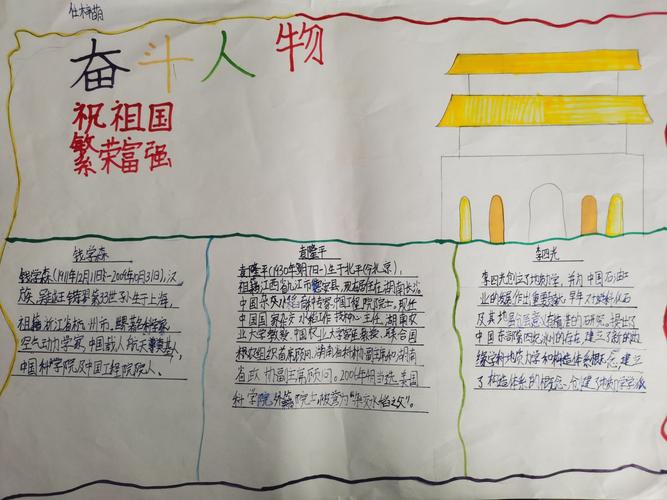 奋斗人物
祝祖国
繁荣富强
钱学森
钱学森(1911年12月11日-2009年10月31日),汉
族,吴越王钱镠第33世孙,生于上海,
祖籍浙江省杭州市。世界著名科学家,
空气动力学家,中国载人航天奠基人,
中国科学院及中国工程院院士,
袁隆平
袁隆平(1930年9月7日-)生于北平(今北京),
祖籍江西省九江市德安县,现居住在湖南长沙
中国杂交水稻育种专家,中国工程院院士。现任
中国国家杂交水稻工作技术中心主任,湖南农
业大学教授,中国农业大学客座教授,联合国
粮农组织首席顾问,湖南省科协副主席和湖南
省政协副主席顾问。2006年4月当选美国
科学院外籍院士,被誉为“杂交水稻之父”。
李四光
李四光创立了地质力学,并为中国石油工
业的发展作出了重要贡献,早年对蜓科化石
及其地层
中国东部第四纪冰川的存在,建立了新的边
缘学科地质力学和构造体系概念,建立
了构造体系的概念,创建了地质力学学派